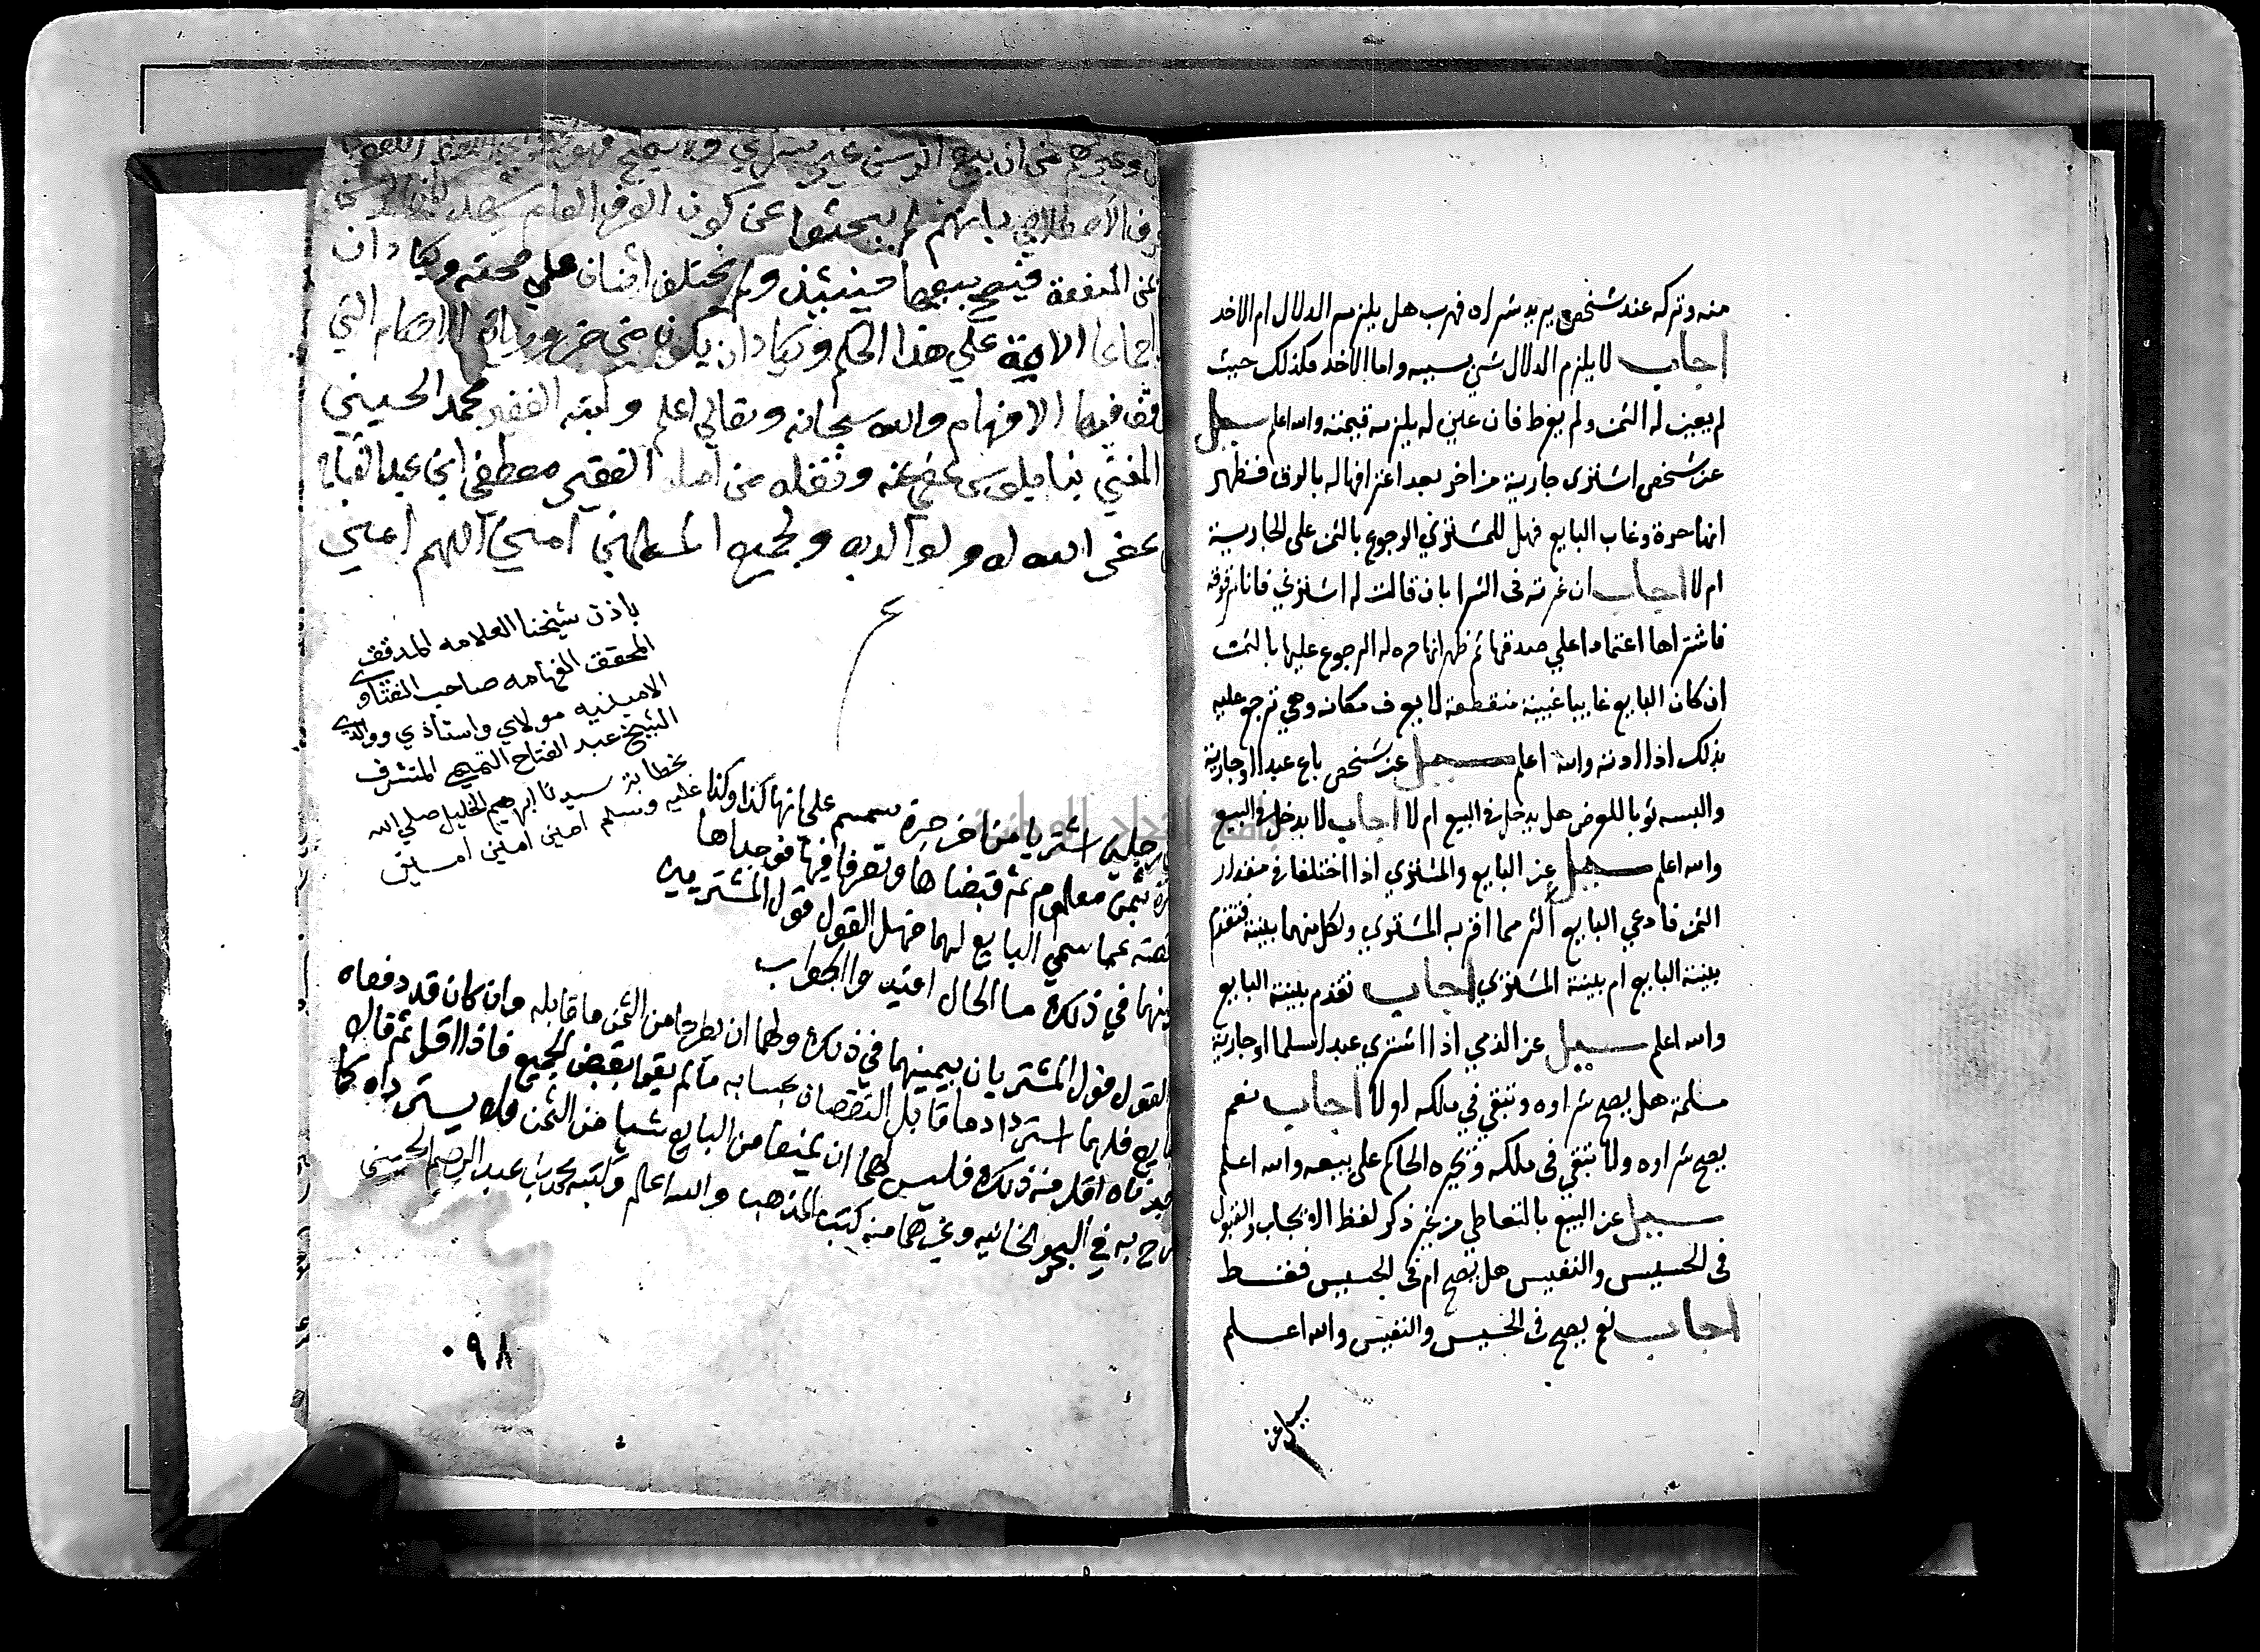 منه وتركه عند شخص يريد شراه فهرب هل يلزم الدلال ام الاخد
اجاب لا يلزم الدلال شي بسببه واما الاخد فكذلك حيث
لم يعين له الثمن ولم يفرط فان عين له يلزمه قيمته والله اعلم سيل
عن شخص اشترى جارية من اخر بعد اعترافها له بالرق فظهر
انها حرة وغاب البايع فهل للمشتري الرجوع بالثمن على الجارية
ام لا اجاب ان غرته في الشرا بان قالت له اشتريني فانا مرقوقة
فاشتراها اعتمادا علي صدقها ثم ظهر انها حره له الرجوع عليها بالثمن
ان كان البايع غايبا غيبة منقطعة لا يعرف مكانه وهي ترجع عليه
بذلك اذا ادته والله اعلم سيل عن شخص باع عبدا او جارية
والبسه ثوبا للعرض هل يدخل في البيع ام لا اجاب لا يدخل في البيع
والله اعلم سيل عن البايع والمشتري اذا اختلفا في مقدار
الثمن فادعي البايع اكثر مما اقر به المشتري ولكل منهما بينة فتقدم
بينة البايع ام بينة المشتري اجاب تقدم بينة البايع
والله اعلم سيل عن الذمي اذا اشتري عبدا مسلما او جارية
مسلمة هل يصح شراوه وتبقي في ملكه او لا اجاب نعم
يصح شراوه ولا تبقي في ملكه ويجبره الحاكم على بيعه والله اعلم
سيل عن البيع بالتعاطي من غير ذكر لفظ الايجاب والقبول
في الخسيس والنفيس هل يصح ام في الخسيس فقط
اجاب نعم يصح في الخسيس والنفيس والله اعلم
سيل عن
من ان بيع
بانهم لم يبحثوا عن كون العرف العام
عن المنفعة فيصح بيعها حينئذ ولم يختلف اثنان علي صحته ويكاد ان
اجماعا الامة علي هذا الحكم ويكاد ان يكون من ضروريات الاحكام التي
الافهام والله سبحانه وتعالي اعلم وكتبه الفقير محمد الحسيني
المفتي بنابلوس عفي عنه ونقله من اصله الفقير مصطفي ابن عبد الفتاح
عفي الله له ولوالديه ولجميع المسلمين امين اللهم امين
باذن شيخنا العلامه المدقق
المحقق الفهامه صاحب الفتاوي
مولاي واستاذي ووالدي
الشيخ عبد الفتاح التميمي المتشرف
بخطابة سيدنا ابراهيم الخليل صلي الله
عليه وسلم امين امين امين
رجلين اشتريا من اخر جرة سمسم على انها كذا وكذا
بثمن معلوم ثم قبضاها وتصرفا فيها فوجداها
عما سمي البايع لهما فهل القول قول المشتريين
في ذلك ما الحال افتيد والجواب
القول قول المشتريان بيمينهما في ذلك ولهما ان يطرحا من الثمن ما قابله وان كان قد دفعاه
فلهما استرداد ما قابل النقصان بحسابه ما لم يقرا بقبض الجميع فاذا اقرا ثم قالا
اقل من ذلك فليس لهما ان يمنعا من البايع شيا من الثمن ولا يستردا
به في البحر والخانيه وغيرهما من كتب المذهب والله اعلم وكتبه محمد بن عبد الرحيم الحسيني
٠٩٨